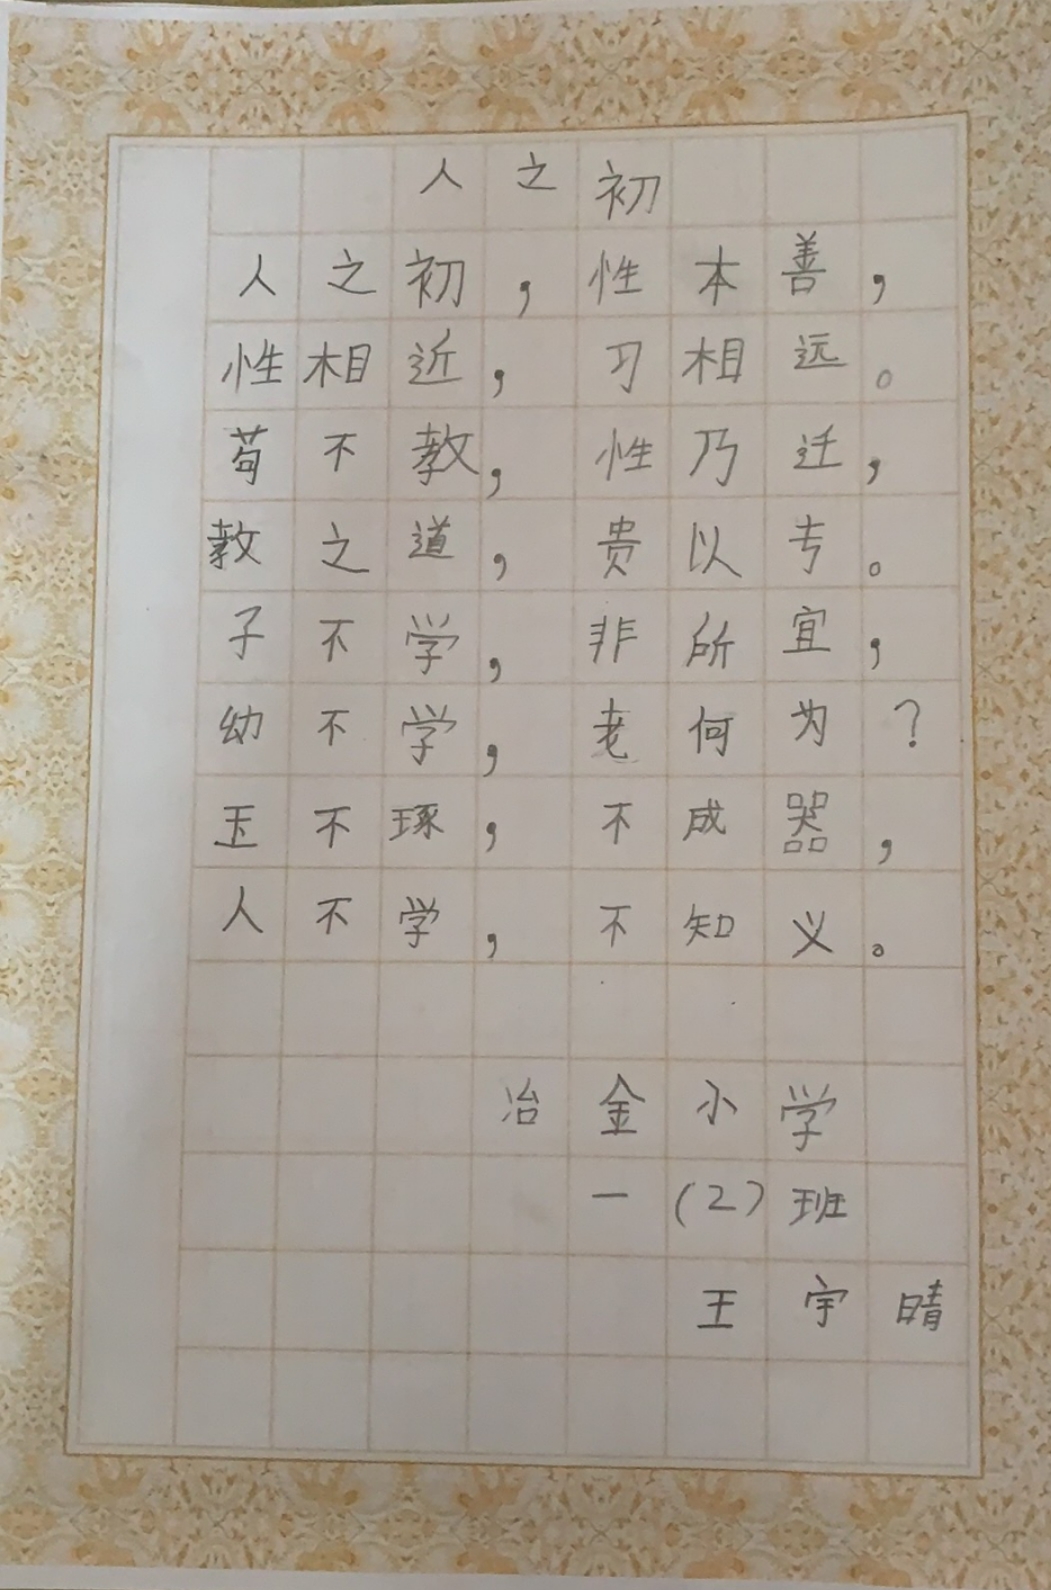 人之初
人之初，性本善，
性相近，习相远。
苟不教，性乃迁，
教之道，贵以专。
子不学，非所宜，
幼不学，老何为？
玉不琢，不成器，
人不学，不知义。
冶金小学
一（2）班
王宇晴